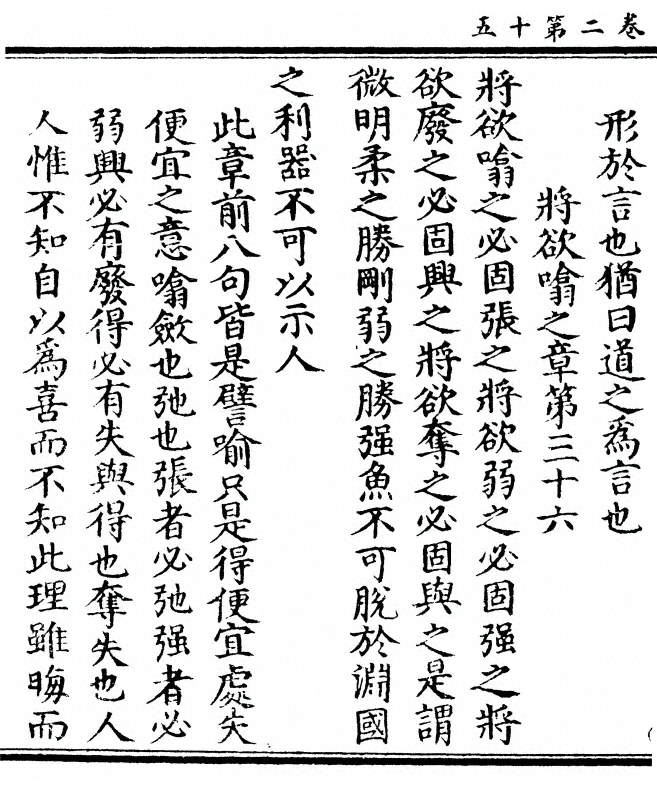 卷二第十五
形於言也猶曰道之爲言也
將欲噏之章第三十六
將欲噏之必固張之將欲弱之必固强之將
欲廢之必固興之將欲奪之必固與之是謂
微明柔之勝剛弱之勝强魚不可脫於淵國
之利器不可以示人
此章前八句皆是譬喻只是得便宜處失
便宜之意噏斂也弛也張者必弛强者必
弱興必有廢得必有失與得也奪失也人
人惟不知自以爲喜而不知此理雖晦而